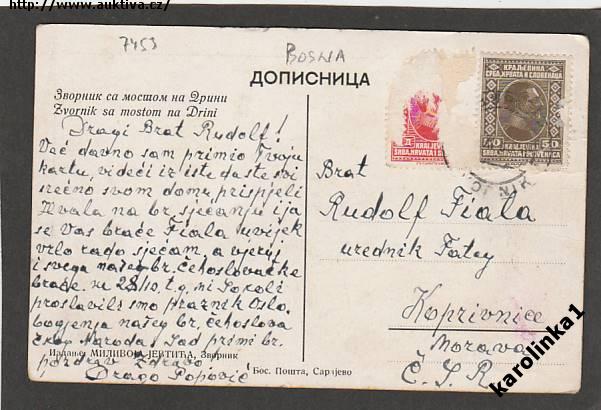 http://www.auktiva.cz/
7453
BOSNA
ДОПИСНИЦА
Зворник са мостом на Дрини
Zvornik sa mostom na Drini
КРАЉЕВИНА
СРБА, ХРВАТА И СЛОВЕНАЦА
50
KRALJEVINA
SRBA, HRVATA I SLOVENACA
KRALJEV
SRBA, HRVATA I S
Dragi Brat Rudolf!
Već davno sam primio Tvoju
kartu, videći iz iste da ste svi
srećno svom domu prispjeli
Hvala na br. sjećanju i ja
se Vas braće Fiala uvijek
vrlo rado sjećam, a vjeruj
i svega našeg br. čehoslovačke
braće. 28/10. t.g. mi Sokoli
proslavili smo praznik Oslo-
bogjenja našeg br. čehoslova
čkog Naroda! Sad primi br.
pozdrav Zdravo
Drago Popović
Brat
Rudolf Fiala
urednik
Koprivnice
Morava
Č.S.R.
Издање МИЛИВОЈА ЈЕВТИЋА, Зворник
Бос. Пошта, Сарајево
karolinka1